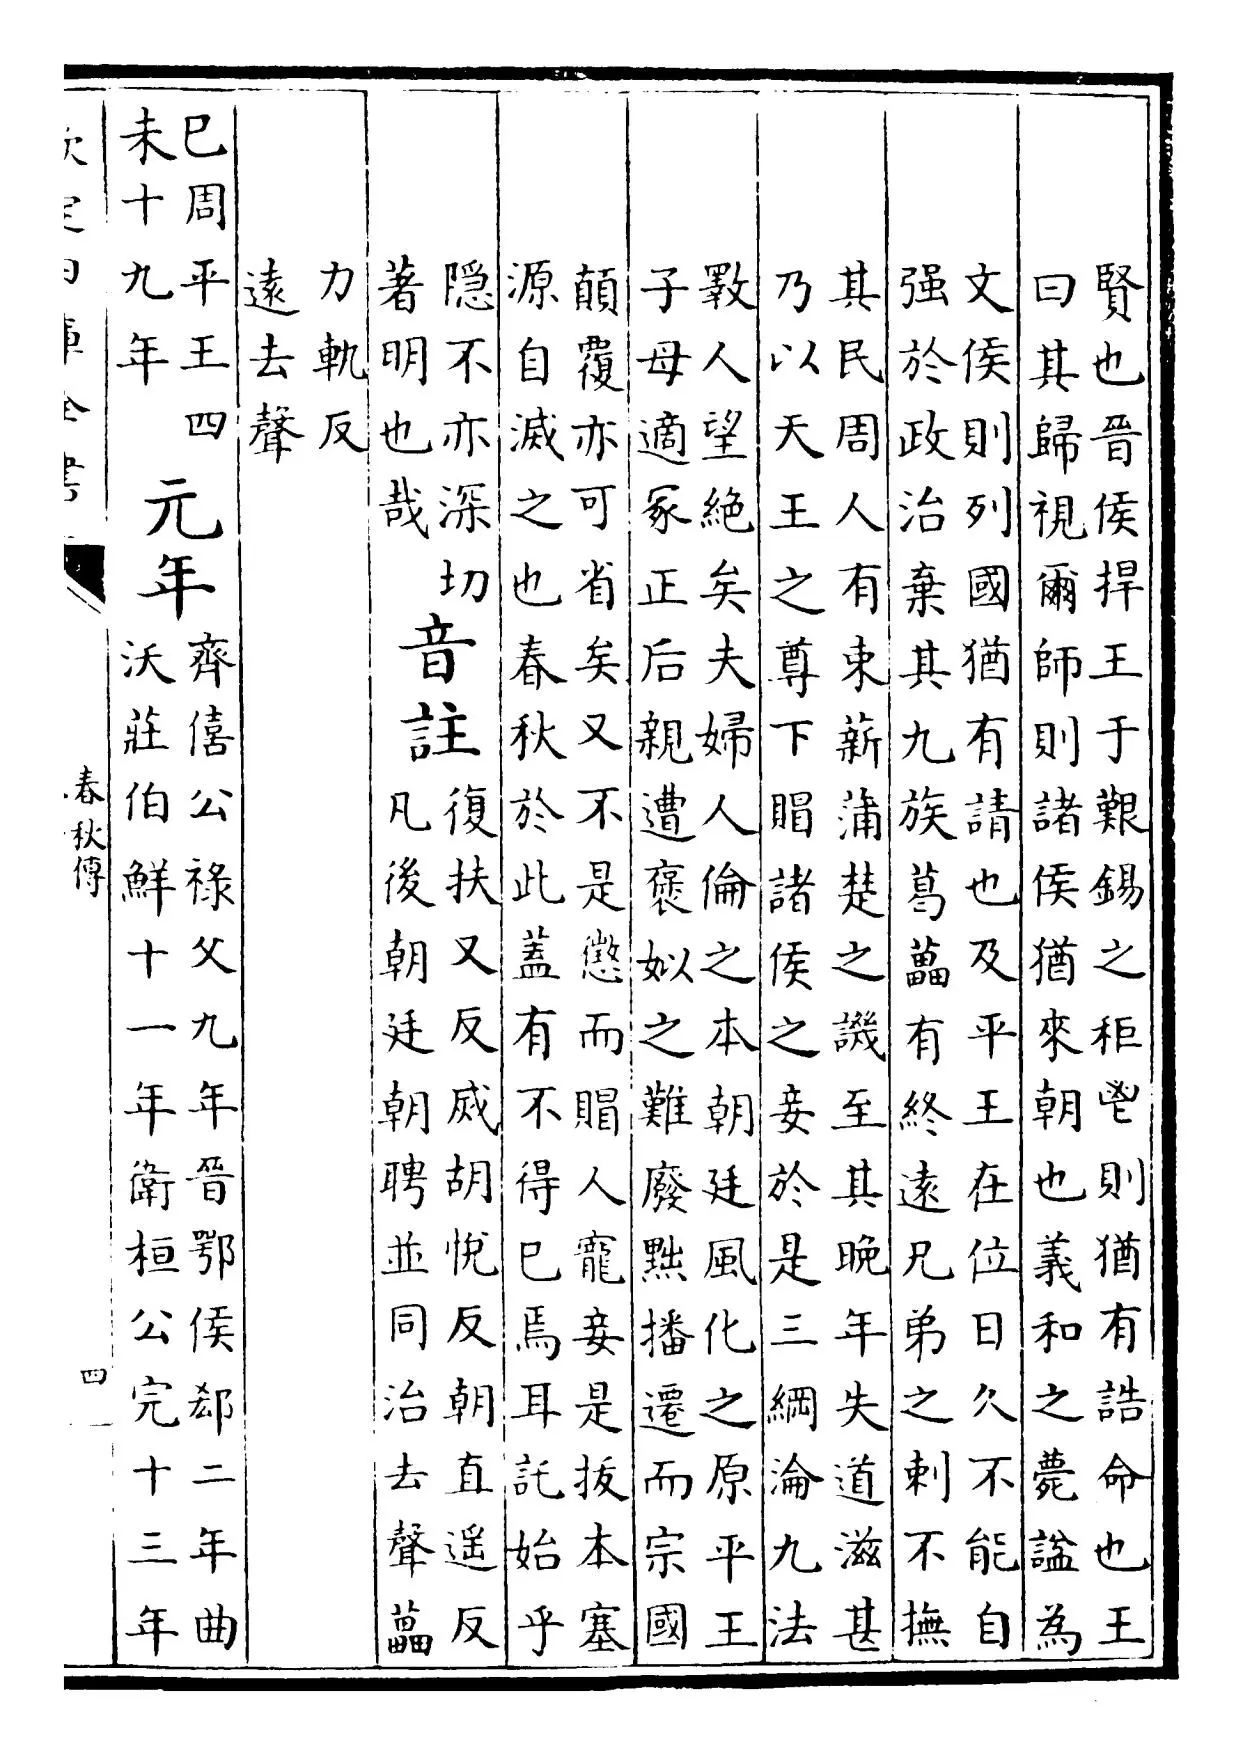 賢也晉侯捍王于艱錫之秬鬯則猶有誥命也王
曰其歸視爾師則諸侯猶來朝也義和之薨諡為
文侯則列國猶有請也及平王在位日久不能自
强於政治棄其九族葛藟有終遠兄弟之刺不撫
其民周人有束薪蒲楚之譏至其晚年失道滋甚
乃以天王之尊下賵諸侯之妾於是三綱淪九法
斁人望絶矣夫婦人倫之本朝廷風化之原平王
子母適冢正后親遭褒姒之難廢黜播遷而宗國
顛覆亦可省矣又不是懲而賵人寵妾是拔本塞
源自滅之也春秋於此蓋有不得已焉耳託始乎
隠不亦深切
著明也哉
音註
復扶又反烕胡悅反朝直遥反
凡後朝廷朝聘並同治去聲藟
力軌反
遠去聲
己周平王四
未十九年
元年
齊僖公祿父九年晉鄂侯郄二年曲
沃莊伯鮮十一年衛桓公完十三年
欽定四庫全書
春秋傳
四